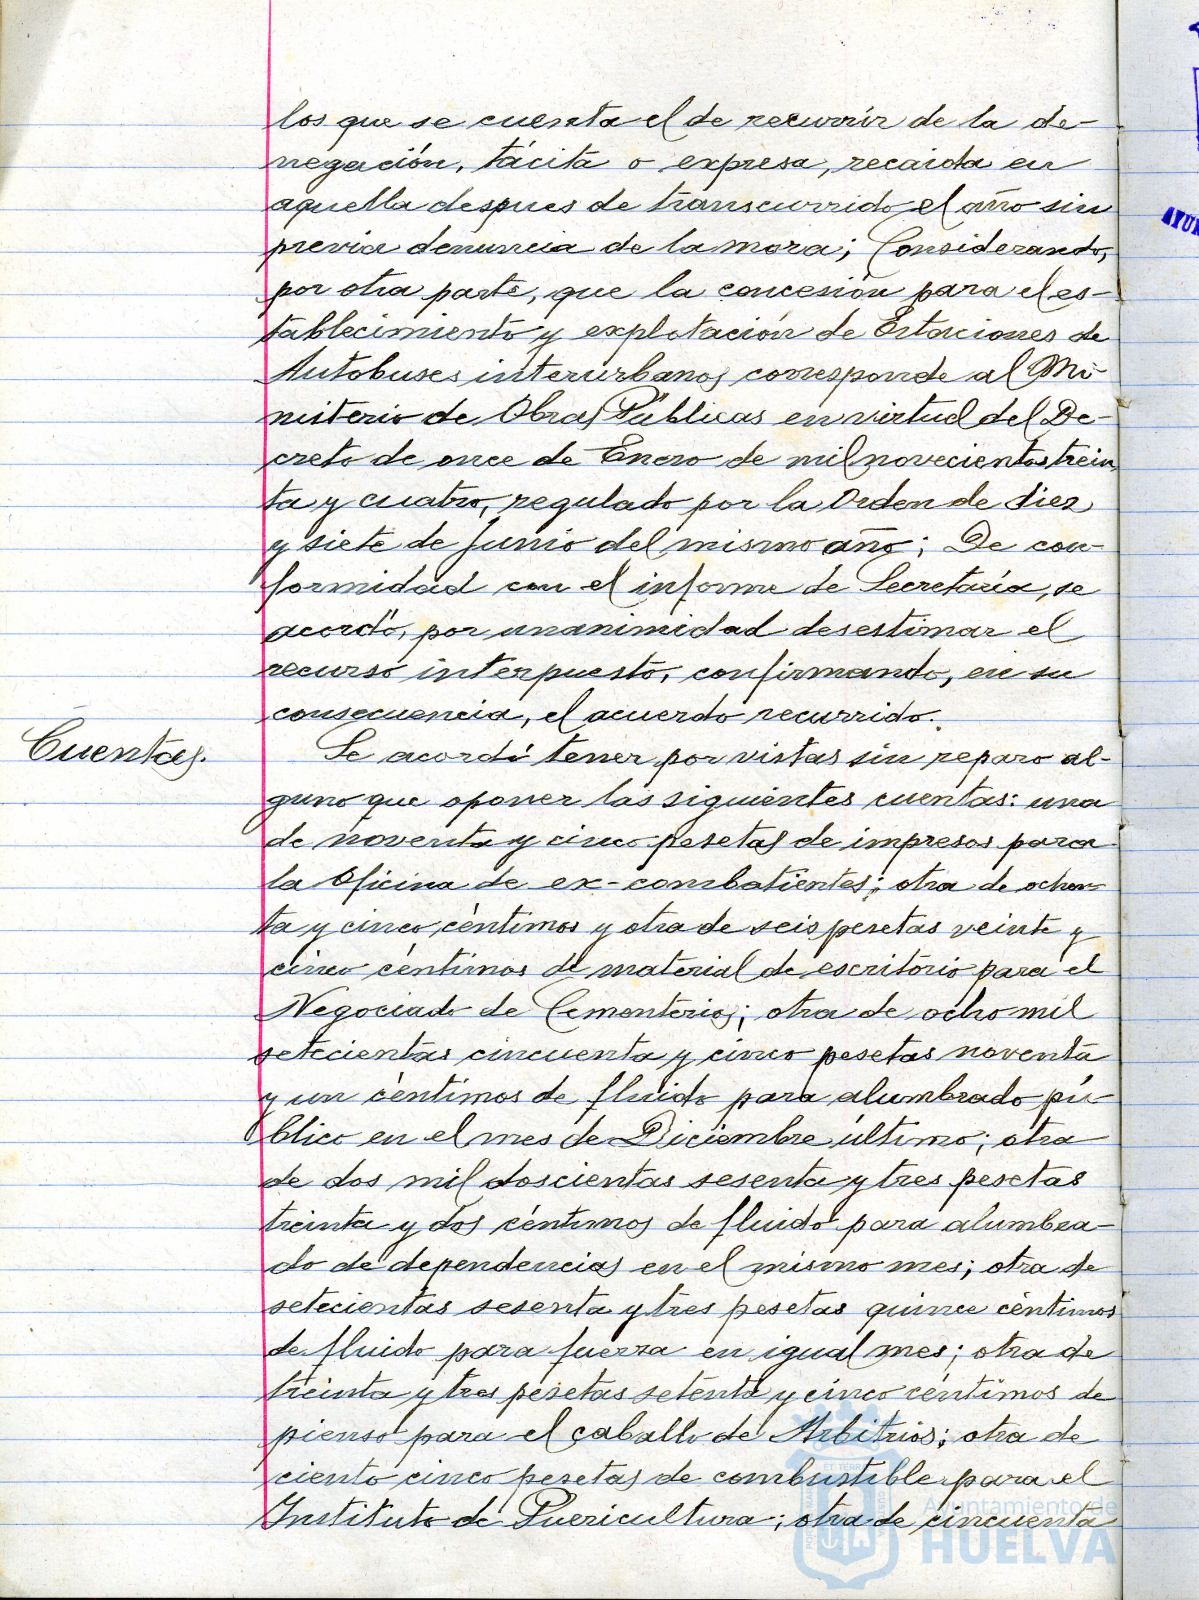 los que se cuenta el de recurrir de la de-
negación, tácita o expresa, recaida en
aquella despues de transcurrido el año sin
previa denuncia de la mora; Considerando,
por otra parte, que la concesión para el es-
tablecimiento y explotación de Estaciones de
Autobuses interurbanos corresponde al Mi-
nisterio de Obras Públicas en virtud del De-
creto de once de Enero de mil novecientos trein
ta y cuatro, regulado por la Orden de diez
y siete de Junio del mismo año; De con-
formidad con el informe de Secretaría, se
acordó, por unanimidad desestimar el
recurso interpuesto, confirmando, en su
consecuencia, el acuerdo recurrido.
Cuentas.
Se acordó tener por vistas sin reparo al-
guno que oponer las siguientes cuentas: una
de noventa y cinco pesetas de impresos para
la Oficina de ex-combatientes; otra de ochen-
ta y cinco céntimos y otra de seis pesetas veinte y
cinco céntimos de material de escritorio para el
Negociado de Cementerios; otra de ocho mil
setecientas cincuenta y cinco pesetas noventa
y un céntimos de fluido para alumbrado pú-
blico en el mes de Diciembre último; otra
de dos mil doscientas sesenta y tres pesetas
treinta y dos céntimos de fluido para alumbra-
do de dependencias en el mismo mes; otra de
setecientas sesenta y tres pesetas quince céntimos
de fluido para fuerza en igual mes; otra de
treinta y tres pesetas setenta y cinco céntimos de
pienso para el caballo de Arbitrios; otra de
ciento cinco pesetas de combustible para el
Instituto de Puericultura; otra de cincuenta
Ayuntamiento de
HUELVA